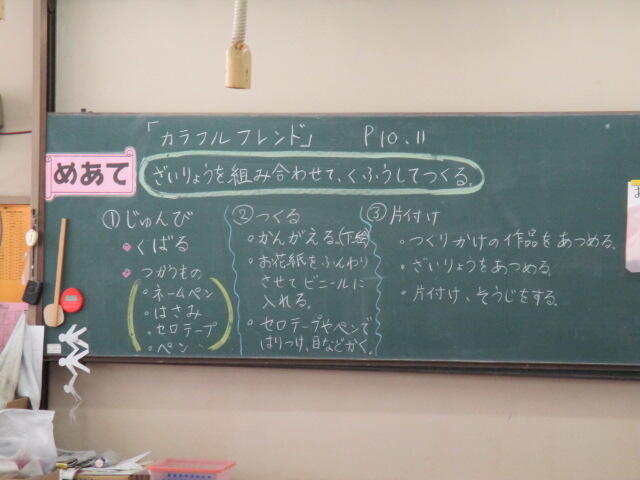 「カラフルフレンド」 P10.11
めあて
ざいりょうを組み合わせて、くふうしてつくる。
①じゅんび
くばる
つかうもの
・ネームペン
・はさみ
・セロテープ
・ペン
②つくる
・かんがえる。(下絵)
・お花紙をふんわり
させてビニールに
入れる。
・セロテープやペンで
はりつけ、目などかく。
③片付け
・つくりかけの作品をあつめる。
・ざいりょうをあつめる。
・片付け、そうじをする。